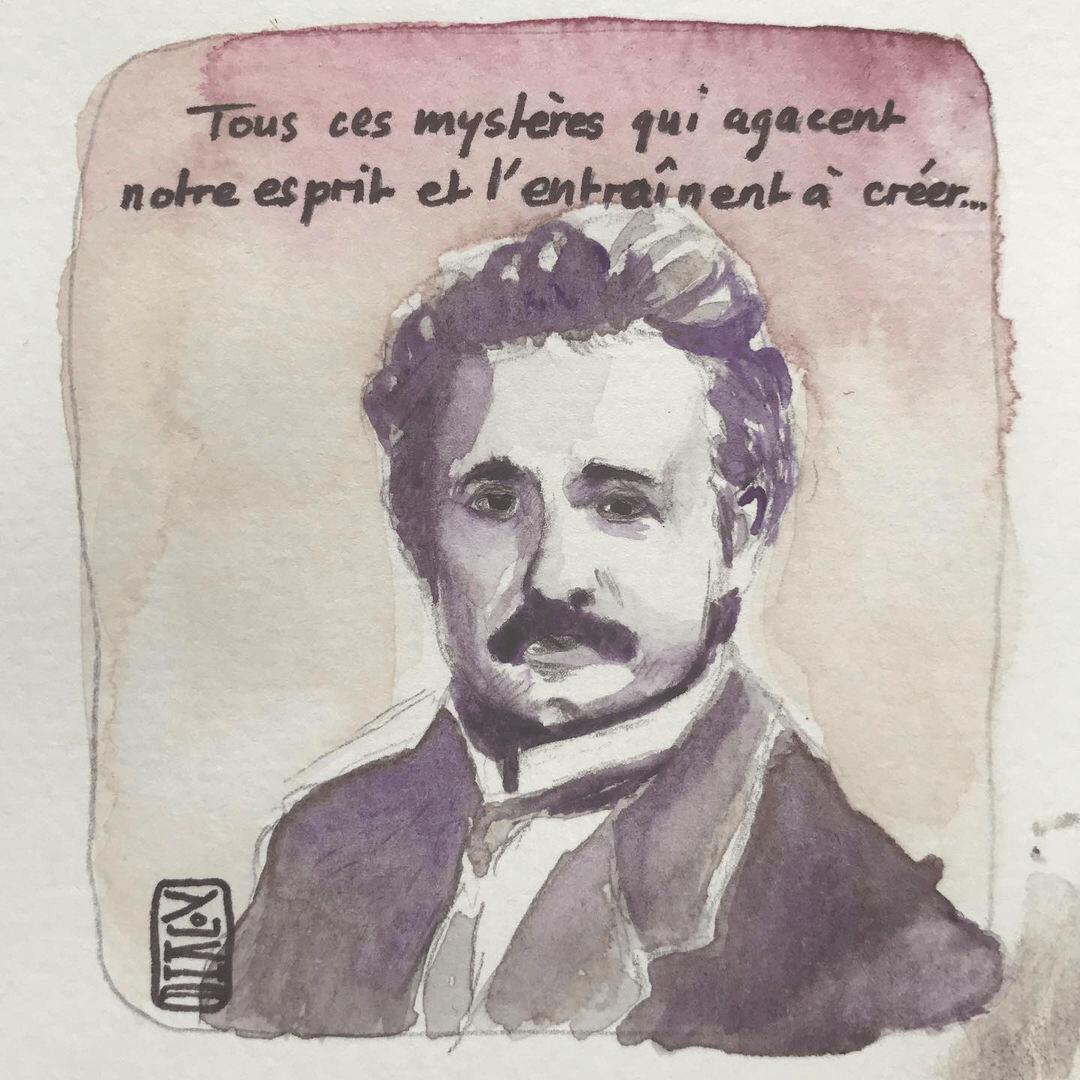 Tous ces mystères qui agacent
notre esprit et l'entraînent à créer...